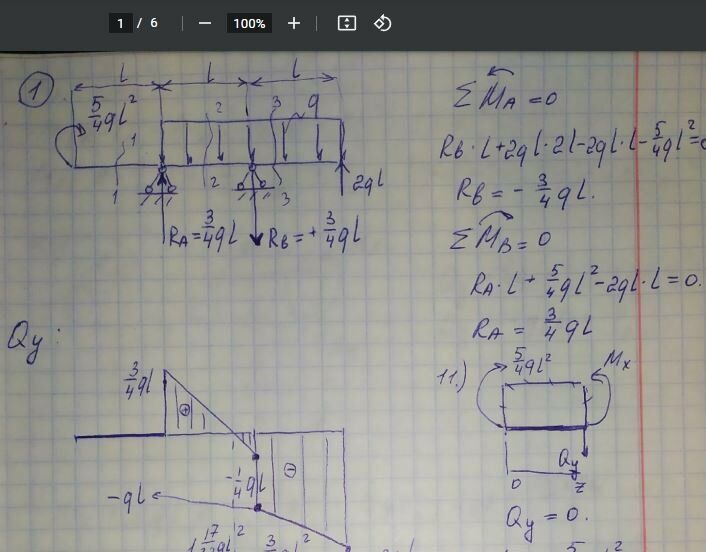 1 / 6
100%
1
l l l
5/4 ql²
1 2 3 q
1 2 3
2ql
R_A = 3/4 ql
R_B = + 3/4 ql
ΣM_A = 0
R_B · l + 2ql · 2l - 2ql · l - 5/4 ql² =
R_B = - 3/4 ql.
ΣM_B = 0
R_A · l + 5/4 ql² - 2ql · l = 0.
R_A = 3/4 ql
Qy :
3/4 ql
⊕
-1/4 ql
⊖
-ql
11.)
5/4 ql²
Mx
Qy
0 z
Qy = 0.